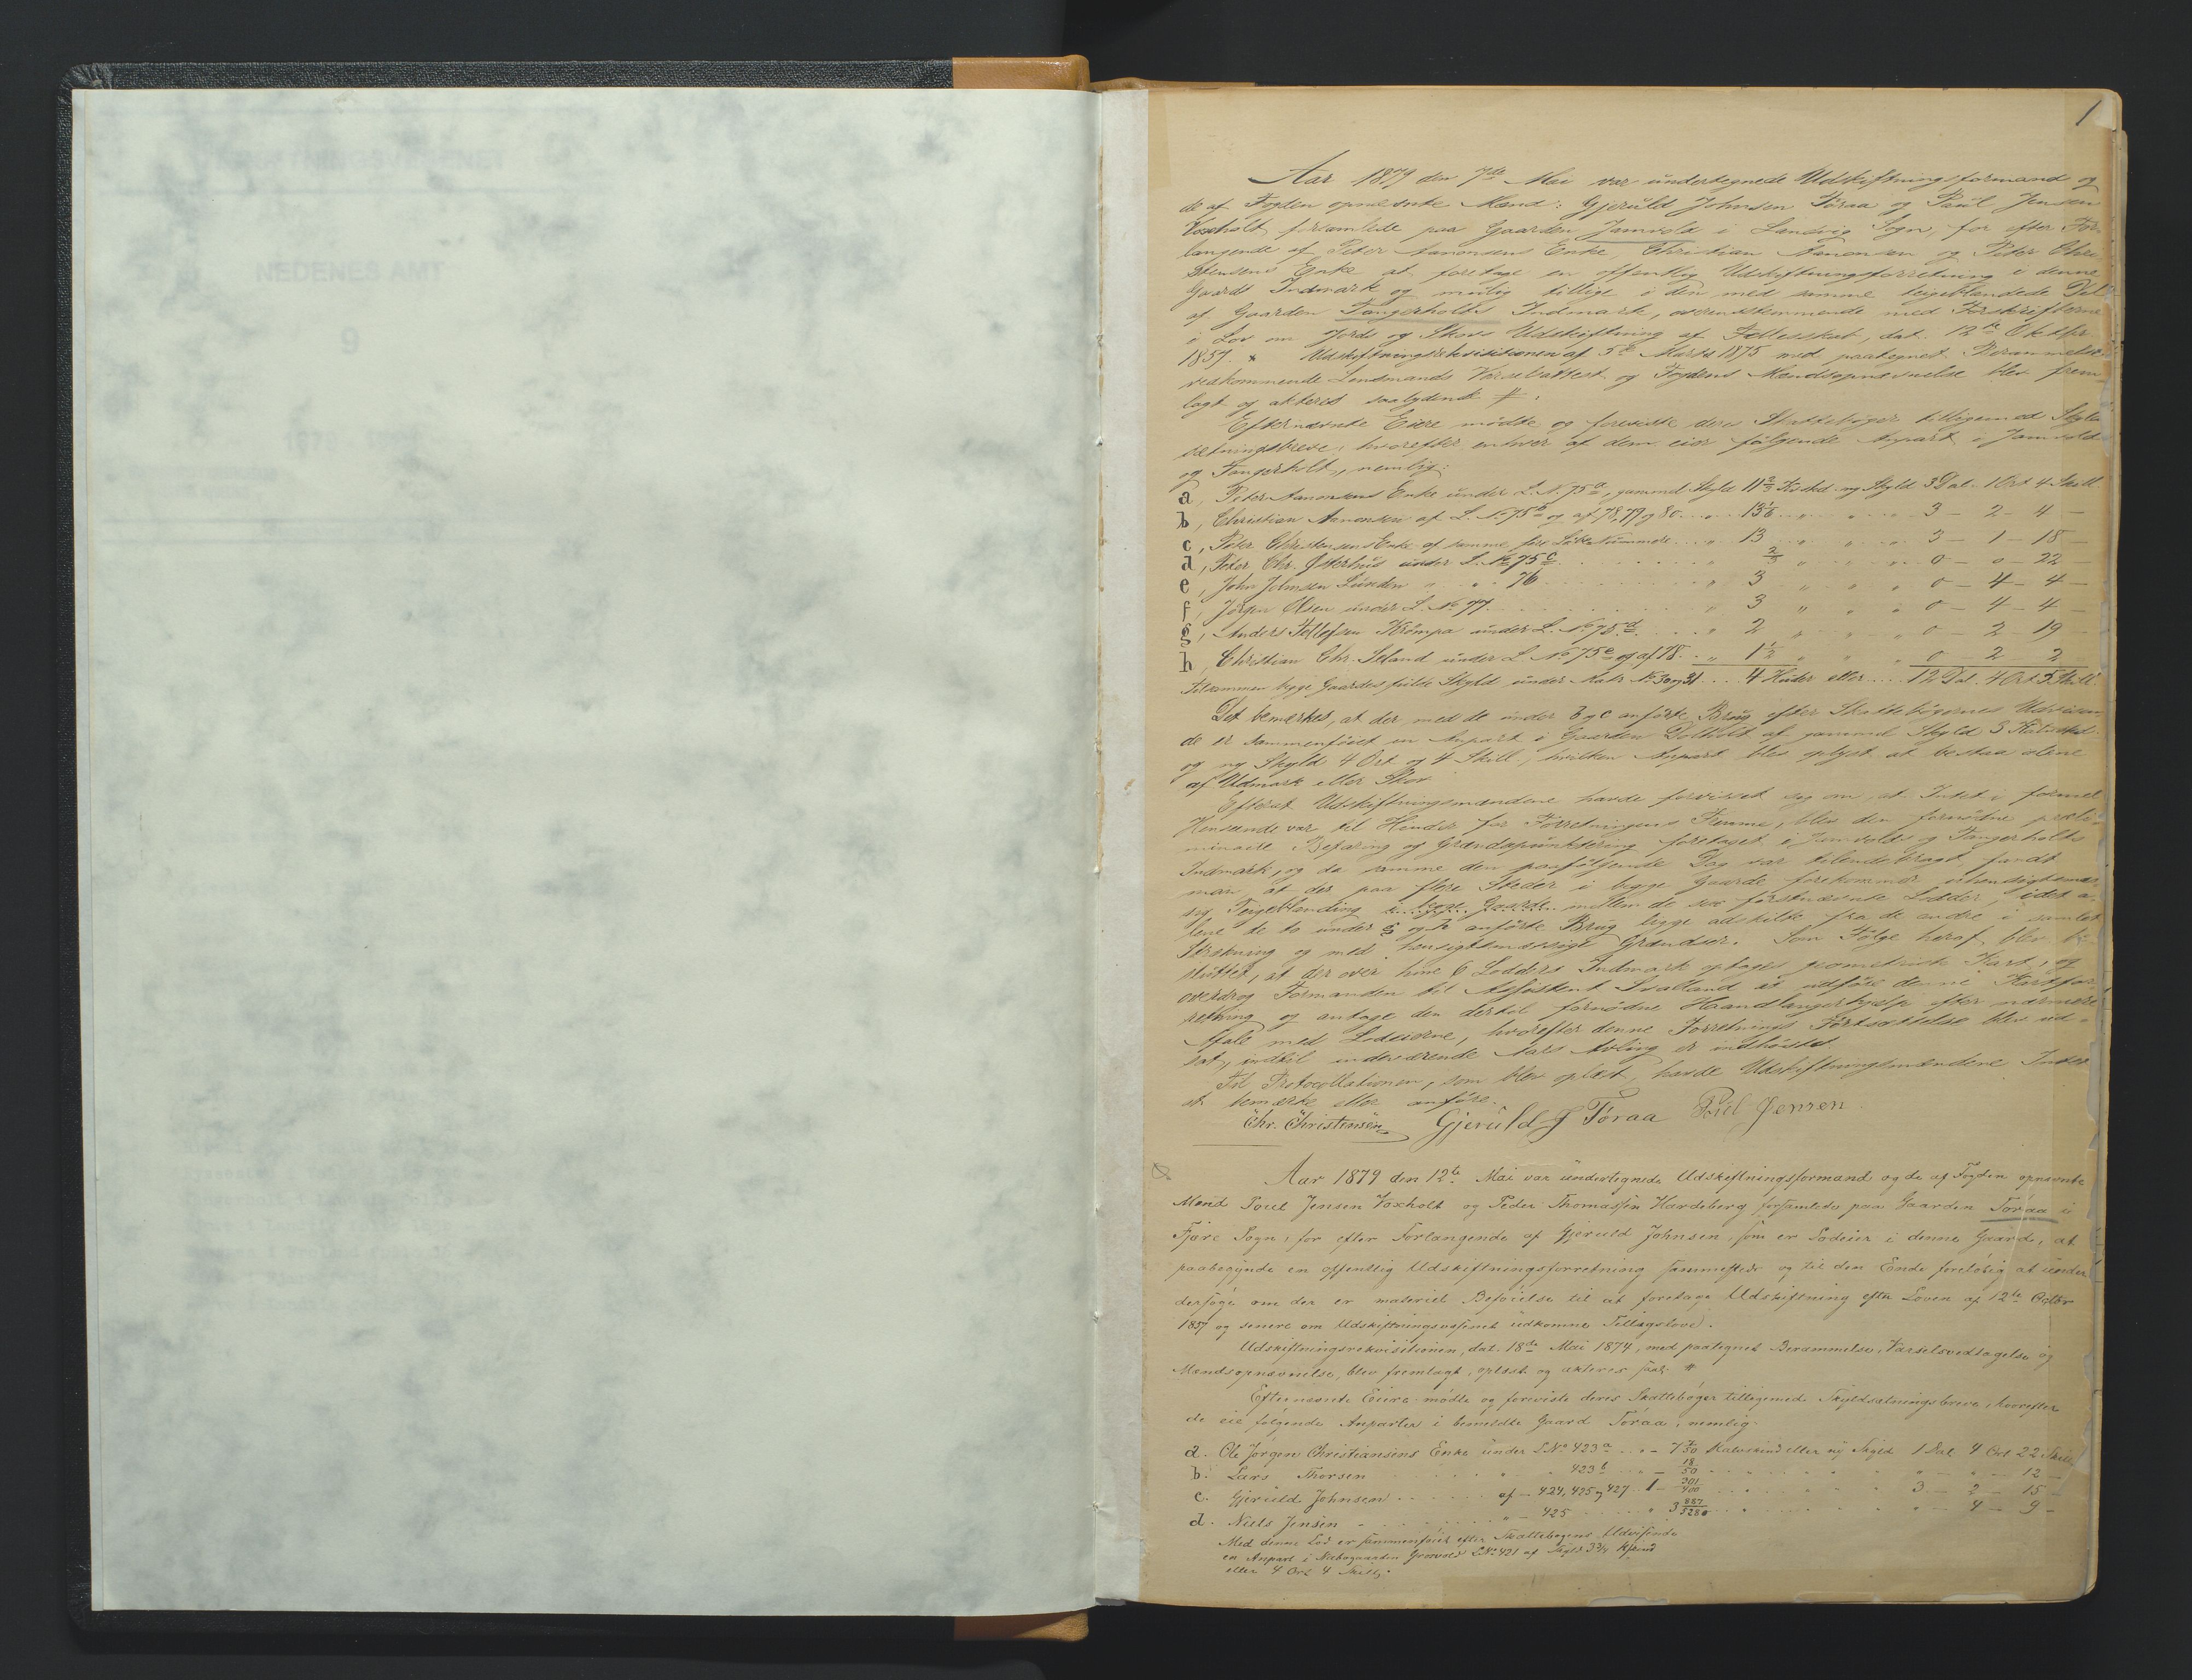 NEDENES AMT
9
1
Aar 1879 den 7de Mai var undertegnede Udskiftningsformand og
de af Fogden opnævnte Mænd: Gjeruld Johnsen Föraa og Poul Jensen
Voxholt forsamlede paa Gaarden Jamvold i Landvig Sogn, for efter For-
langende af Peter Aanonsens Enke, Christian Aanonsen og Peter Chri-
stensens Enke at foretage en offentlig Udskiftningsforretning i denne
Gaards Indmark og mulig tillige i den med samme teigeblandede Del
af Gaarden Tangerholts Indmark, overensstemmende med Forskrifterne
i Lov om Jords og Skovs Udskiftning af Fællesskab, dat. 12te Oktbr
1857. Udskiftningsrekvisitionen af 5te Marts 1875 med paategnet Berammelse
vedkommende Lensmands Varselsattest og Fogdens Mændsopnævnelse blev frem-
lagt og akteres saalydende #:
Efternævnte Eiere mødte og foreviste deres Skattebøger tilligemed Skyld-
sætningsbreve, hvorefter enhver af dem eier følgende Anpart i Jamvold
og Tangerholt, nemlig:
a, Peter Aanonsens Enke under L. N. 75a, gammel Skyld 11 2/3 Kskd. ny Skyld 3 Dal. 1 Ort 4 Skill
b, Christian Aanonsen af L. No 75b og af 78, 79 og 80 . . . „ 13 1/6 „ „ „ 3 – 2 – 4 –
c, Peter Christensens Enke af samme fire Løbe Nummere . . . „ 13 „ „ „ 3 – 1 – 18 –
d, Peter Chr. Østerhus under L. No 75c . . . „ 2/3 „ „ „ 0 – 0 – 22 –
e, John Johnsen Lunden „ „ 76 . . . „ 3 „ „ „ 0 – 4 – 4 –
f, Jörgen Olsen under L. No 77 . . . „ 3 „ „ „ 0 – 4 – 4 –
g, Anders Tellefsen Krömpa under L. No 75d . . . „ 2 „ „ „ 0 – 2 – 19 –
h, Christian Chr. Seland under L No 75e og af 78 . . „ 1 1/2 „ „ „ 0 2 2
tilsammen begge Gaardes fulde Skyld under Matr. No 30 og 31 . . . 4 Huder eller . . . 12 Dal. 4 Ort 5 Skill.
Det bemærkes, at der med de under b og c anførte Brug efter Skattebøgernes Udvisen-
de er sammenføiet en Anpart i Gaarden Dolholt af gammel Skyld 3 Kalvskd.
og ny Skyld 4 Ort og 4 Skill, hvilken Anpart blev oplyst at bestaa alene
af Udmark eller Skov.
Efterat Udskiftningsmændene havde forvisset sig om, at Intet i formel
Henseende var til Hinder for Forretningens Fremme, blev den fornødne præli-
minaire Befaring og Grændspunktering foretaget i Jamvolds og Tangerholts
Indmark, og da samme den paafølgende Dag var tilendebragt, fandt
man, at der paa flere Steder i begge Gaarde forekommer uhensigtsmæs-
sig Teigeblanding i begge Gaarde mellem de sex førstnævnte Lodder, idet a-
lene de to under g og h anførte Brug ligge adskilte fra de andre i samlet
Strækning og med hensigtsmæssige Grændser. Som Følge heraf blev be-
sluttet, at der over hine 6 Lodders Indmark optages geometrisk Kart, og
overdrog Formanden til Assistent Svalland at udføre denne Kartfor-
retning og antage den dertil fornødne Haandlangerhjælp efter nærmere
Aftale med Lodeierne, hvorefter denne Forretnings Fortsættelse blev ud-
sat, indtil indeværende Aars Avling er indhöstet.
Til Protocollationen, som blev oplæst, havde Udskiftningsmændene Intet
at bemærke eller anføre.
Chr. Christensen Gjeruld J Föraa Poul Jensen.
Aar 1879 den 12te Mai var undertegnede Udskiftningsformand og de af Fogden opnævnte
Mænd Poul Jensen Voxholt og Peder Thomassen Hardeberg forsamlede paa Gaarden Föraa i
Fjære Sogn, for efter Forlangende af Gjeruld Johnsen, som er Lodeier i denne Gaard, at
paabegynde en offentlig Udskiftningsforretning sammesteds og til den Ende foreløbig at under
dersøge om der er materiel Beføielse til at foretage Udskiftning efter Loven af 12te Octbr
1857 og senere om Udskiftningsvæsenet udkomne Tillægslove.
Udskiftningsrekvisitionen, dat. 18de Mai 1874, med paategnet Berammelse, Varselsvedtagelse og
Mændsopnævnelse, blev fremlagt, oplæst og akteres saal. #
Efternævnte Eiere mødte og foreviste deres Skattebøger tilligemed Skyldsætningsbreve, hvorefter
de eie følgende Anparter i bemeldte Gaard Föraa, nemlig:
a. Ole Jörgen Christiansens Enke under L No 423a . . – 7 7/50 Kalvskind eller ny Skyld 1 Dal 4 Ort 22 Skill
b. Lars Thorsen . . . „ „ 423b . . – 18/50 . . . „ – „ – 12 –
c. Gjeruld Johnsen . . . af – 424, 425 og 427 1 – 301/400 . . . 3 – 2 – 15 –
d. Niels Jensen – . . . „ – 425 . . . „ 3 887/5280 . . . „ – 4 – 9 –
Med denne Lod er sammenføiet efter Skattebogens Udvisende
en Anpart i Nabogaarden Grøvold L No 421 af Skyld 3 3/4 Kskind
eller 4 Ort 4 Skill.